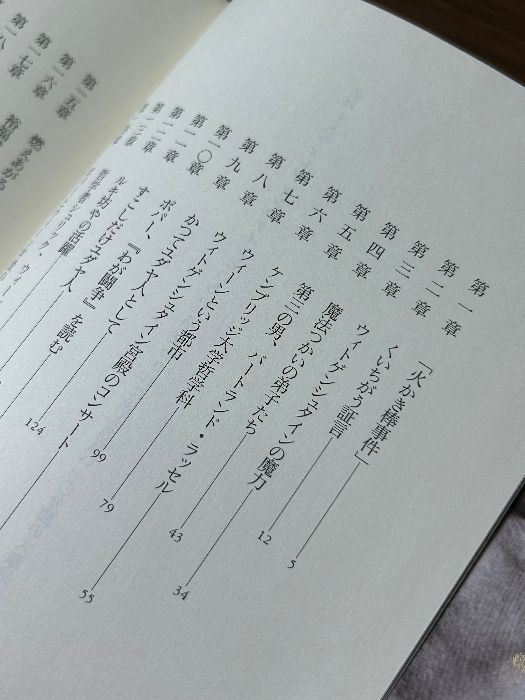 第一章 「火かき棒事件」 5
第二章 くいちがう証言 12
第三章 ウィトゲンシュタインの魔力 34
第四章 魔法つかいの弟子たち 43
第五章 第三の男、バートランド・ラッセル 55
第六章 ケンブリッジ大学哲学科 79
第七章 ウィーンという都市 99
第八章 ウィトゲンシュタイン宮殿のコンサート
第九章 かつてユダヤ人として 124
第一〇章 ポパー、『わが闘争』を読む
第一一章 すこしだけユダヤ人
第一二章 ルキ坊やの活躍
第一三章
第一五章 燃えあがる
第一六章
第一七章